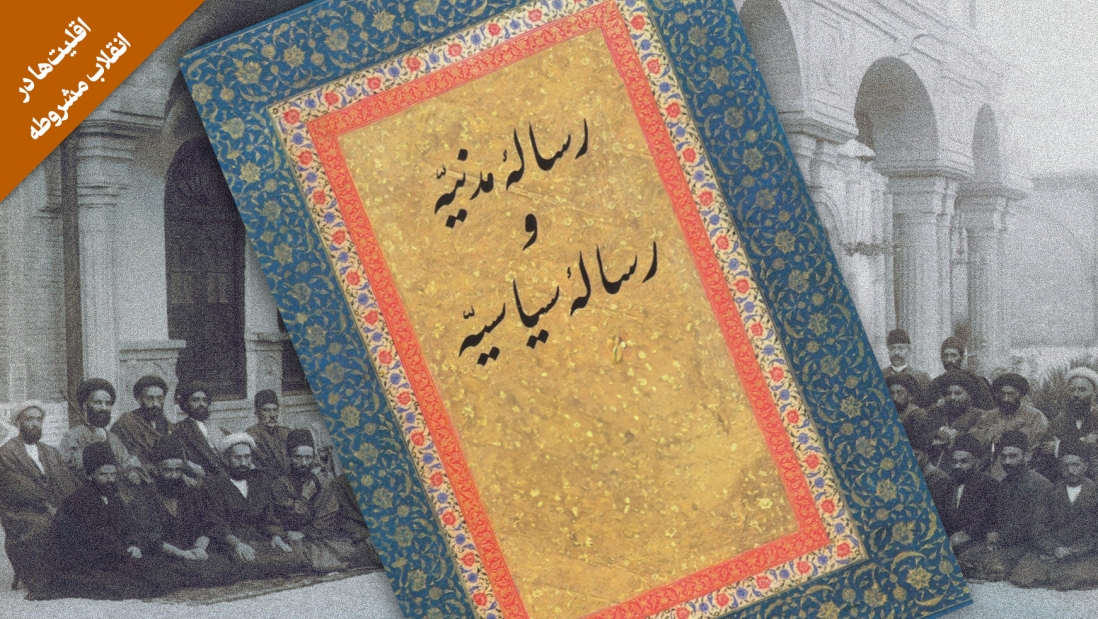 اقلیت‌ها در
انقلاب مشروطه
رسالهٔ مدنیّه
و
رسالهٔ سیاسیّه